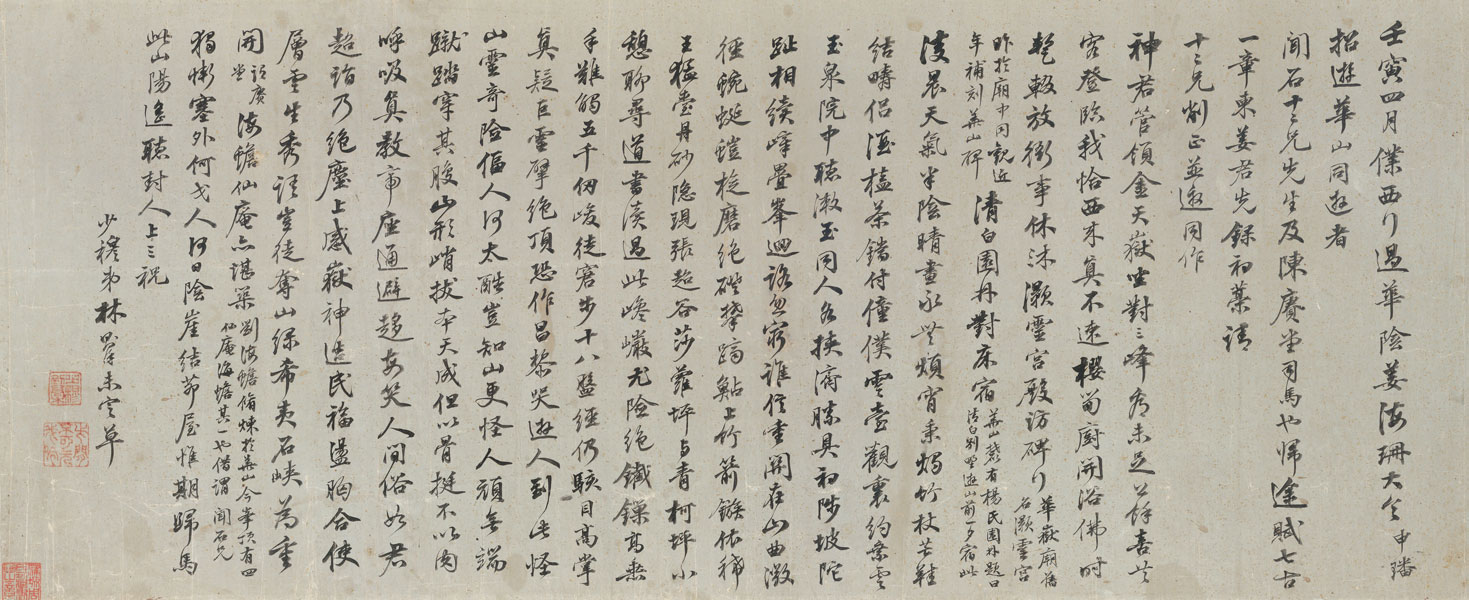 壬寅四月僕西行過華陰姜海珊大令申璠
招遊華山同遊者
聞石十二兄先生及陳賡堂司馬也歸途賦七古
一章柬姜君先錄初藁請
十二兄削正並邀同作
神君管領金天嶽坐對三峰看未足公餘喜共
客登臨我恰西來真不速櫻筍廚開浴佛時
放衙事休沐灝靈宮殿訪碑行
華嶽廟舊
名灝靈宮
昨於廟中同觀近
年補刻華山碑
清白園對床宿
華山麓有楊氏園外題曰
清白別墅遊山前一夕宿此
淩晨天氣半陰晴晝永無煩宵秉燭竹杖芒鞵
結疇侶酒榼茶鐺付僮僕雲臺觀裏約參雲
玉泉院中聽漱玉同人各挾濟勝具初陟坡陀
趾相續峰疊峯迴路忽窮誰信重關在山曲激
徑蜿蜒螘旋磨絕磴攀躋鮎上竹箭鏃依稀
王猛臺丹砂隱現張超谷莎蘿坪與青柯坪小
憩聊尋道書讀過此巉巖尤險絕鐵鏁高垂
手難觸五千仞峻徒窘步十八盤經仍駭目高掌
真疑巨靈擘絕頂恐作昌黎哭遊人到此怪
山靈奇險偪人何太酷豈知山更怪人頑無端
蹴踏穿其腹山形峭拔本天成但以骨挺不以肉
呼吸真教帝座通避趨每笑人間俗如君
超詣乃絕塵上感嶽神造民福盪胸合使
層雲生秀語豈徒奪山綠希夷石峽為重
開
謂廣
堂
海蟾仙庵亦謀築
劉海蟾脩煉於華山今峯頂有四
仙庵海蟾其一也借謂聞石兄
獨慚塞外荷戈人何日陰崖結茆屋惟期歸馬
此山陽遙聽封人上三祝
少穆弟林則徐未定草